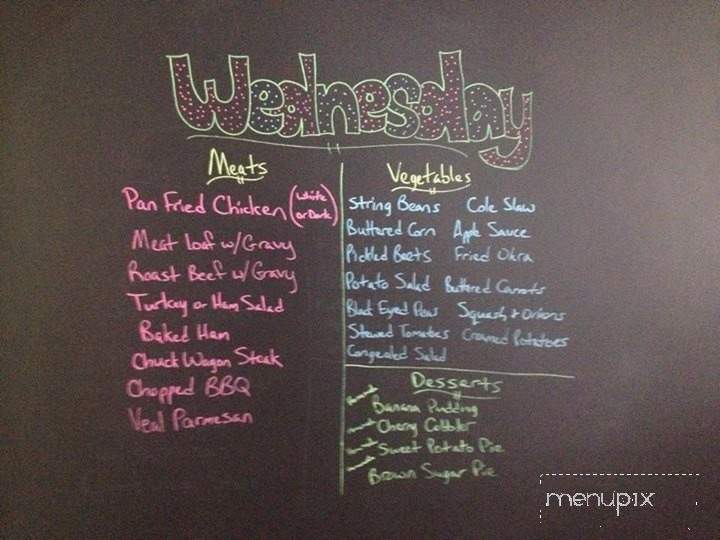 Wednesday
Meats
Pan Fried Chicken (White or Dark)
Meat Loaf w/Gravy
Roast Beef w/Gravy
Turkey or Ham Salad
Baked Ham
Chuck Wagon Steak
Chopped BBQ
Veal Parmesan
Vegetables
String Beans Cole Slaw
Buttered Corn Apple Sauce
Pickled Beets Fried Okra
Potato Salad Buttered Carrots
Black Eyed Peas Squash & Onions
Stewed Tomatoes Creamed Potatoes
Congealed Salad
Desserts
Banana Pudding
Cherry Cobbler
Sweet Potato Pie
Brown Sugar Pie
menupix